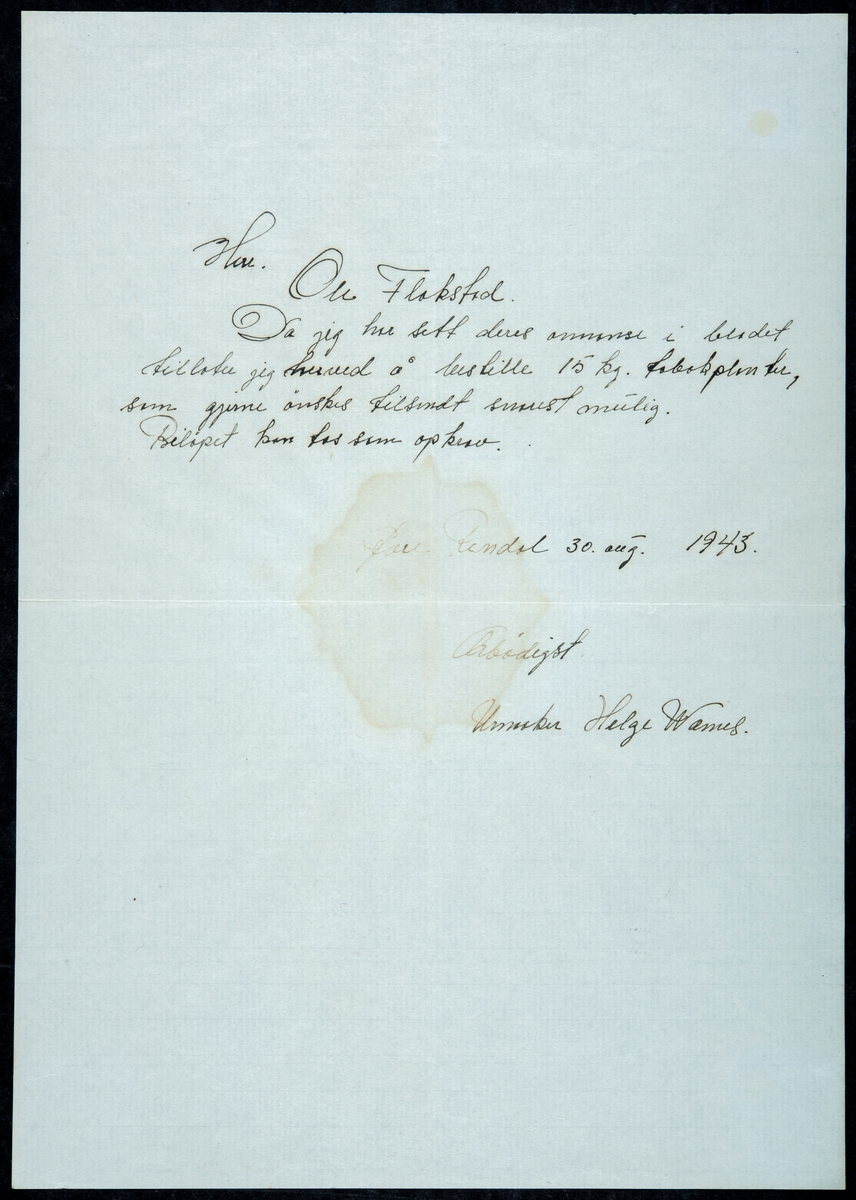 Herr.
Ole Flakstad.
Da jeg har sett deres annonse i bladet
tillater jeg herved å bestille 15 kg. tobakplanter,
som gjerne ønskes tilsendt snarest mulig.
Beløpet kan tas som opkrav.
Øvre Rendal 30. aug. 1943.
Ærbødigst
Urmaker Helge Warnes.